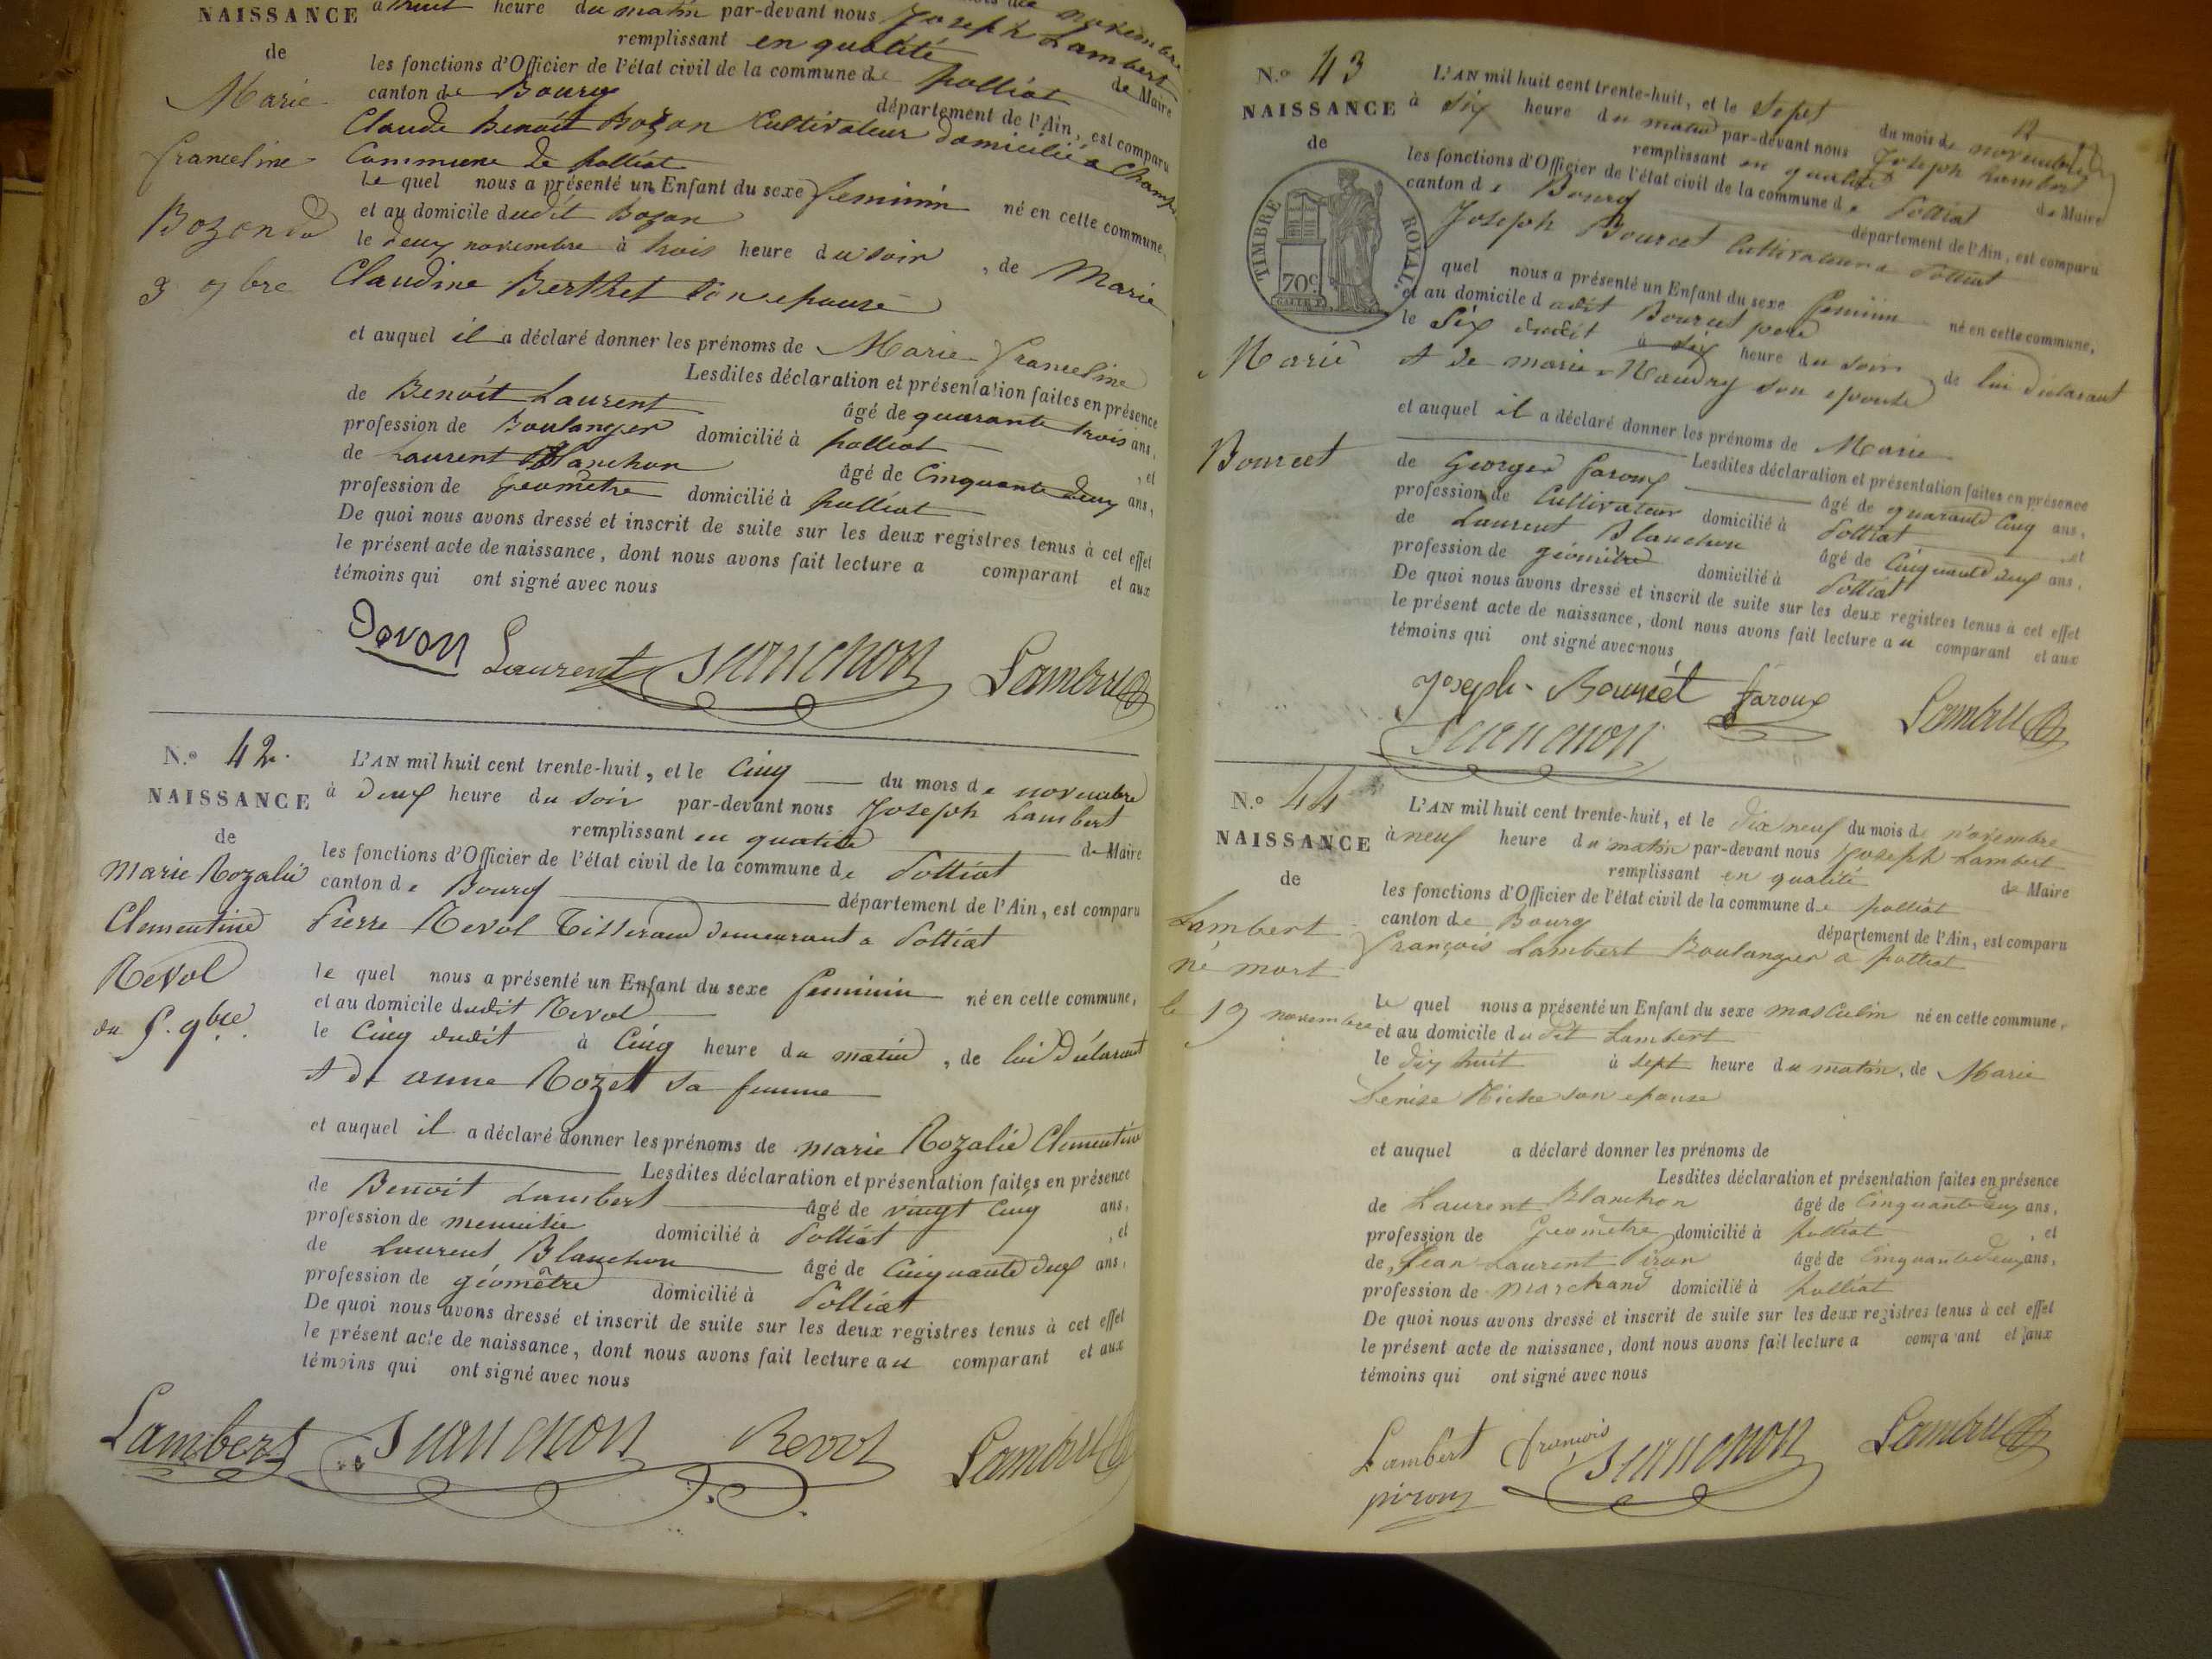 NAISSANCE
de
Marie
franceline
Bozon du
3 9bre
heure du matin par-devant nous Joseph Lambert
remplissant en qualité de Maire
les fonctions d'Officier de l'état civil de la commune de polliat
canton de Bourg département de l'Ain, est comparu
Claude Benoit Bozon Cultivateur domicilié a
Commune de polliat
le quel nous a présenté un Enfant du sexe feminin né en cette commune,
et au domicile dudit Bozon
le deux novembre à trois heure du soir, de Marie
Claudine Berthet son epouse
et auquel il a déclaré donner les prénoms de Marie franceline
Lesdites déclaration et présentation faites en présence
de Benoit Laurent âgé de quarante trois ans,
profession de Boulanger domicilié à polliat, et
de Laurent Blanchon âgé de Cinquante deux ans,
profession de Geomètre domicilié à polliat
De quoi nous avons dressé et inscrit de suite sur les deux registres tenus à cet effet
le présent acte de naissance, dont nous avons fait lecture a comparant et aux
témoins qui ont signé avec nous
Laurent Blanchon Lambert
N.º 42.
NAISSANCE
de
Marie Rozalie
Clementine
Revol
du 5. 9bre.
L'AN mil huit cent trente-huit, et le Cinq du mois de novembre
à deux heure du soir par-devant nous Joseph Lambert
remplissant en qualité de Maire
les fonctions d'Officier de l'état civil de la commune de Polliat
canton de Bourg département de l'Ain, est comparu
Pierre Revol Tisserand demeurant a Polliat
le quel nous a présenté un Enfant du sexe feminin né en cette commune,
et au domicile dudit Revol
le Cinq dudit à Cinq heure du matin, de lui déclarant
et de anne Rozet sa femme
et auquel il a déclaré donner les prénoms de marie Rozalie Clementine
Lesdites déclaration et présentation faites en présence
de Benoit Lambert âgé de vingt Cinq ans,
profession de menuisier domicilié à Polliat, et
de Laurent Blanchon âgé de Cinquante deux ans,
profession de géomètre domicilié à Polliat
De quoi nous avons dressé et inscrit de suite sur les deux registres tenus à cet effet
le présent acte de naissance, dont nous avons fait lecture au comparant et aux
témoins qui ont signé avec nous
Lambert Blanchon Revol Lambert
N.º 43
NAISSANCE
de
TIMBRE ROYAL.
70c.
Marie
Bourcet
L'AN mil huit cent trente-huit, et le Sept du mois de novembre
à Six heure du matin par-devant nous Joseph Lambert
remplissant en qualité de Maire
les fonctions d'Officier de l'état civil de la commune de Polliat
canton de Bourg département de l'Ain, est comparu
Joseph Bourcet Cultivateur a Polliat
quel nous a présenté un Enfant du sexe feminin né en cette commune,
et au domicile dudit Bourcet pere
le Six dudit à six heure du soir de lui déclarant
et de marie Naudry son epouse
et auquel il a déclaré donner les prénoms de Marie
Lesdites déclaration et présentation faites en présence
de Georges faroux âgé de quarante Cinq ans,
profession de Cultivateur domicilié à Polliat, et
de Laurent Blanchon âgé de Cinquante deux ans,
profession de géomètre domicilié à Polliat
De quoi nous avons dressé et inscrit de suite sur les deux registres tenus à cet effet
le présent acte de naissance, dont nous avons fait lecture au comparant et aux
témoins qui ont signé avec nous
Joseph Bourcet faroux Lambert
Blanchon
N.º 44
NAISSANCE
de
Lambert
né mort
le 19 novembre
L'AN mil huit cent trente-huit, et le dix neuf du mois de novembre
à neuf heure du matin par-devant nous Joseph Lambert
remplissant en qualité de Maire
les fonctions d'Officier de l'état civil de la commune de polliat
canton de Bourg département de l'Ain, est comparu
françois Lambert Boulanger a polliat
le quel nous a présenté un Enfant du sexe masculin né en cette commune,
et au domicile dudit Lambert
le dix huit à sept heure du matin, de Marie
Denise Miche son epouse
et auquel a déclaré donner les prénoms de
Lesdites déclaration et présentation faites en présence
de Laurent Blanchon âgé de Cinquante deux ans,
profession de Geomètre domicilié à polliat, et
de Jean Laurent Piron âgé de Cinquante deux ans,
profession de marchand domicilié à polliat
De quoi nous avons dressé et inscrit de suite sur les deux registres tenus à cet effet
le présent acte de naissance, dont nous avons fait lecture a comparant et aux
témoins qui ont signé avec nous
Lambert françois Blanchon Lambert
piron